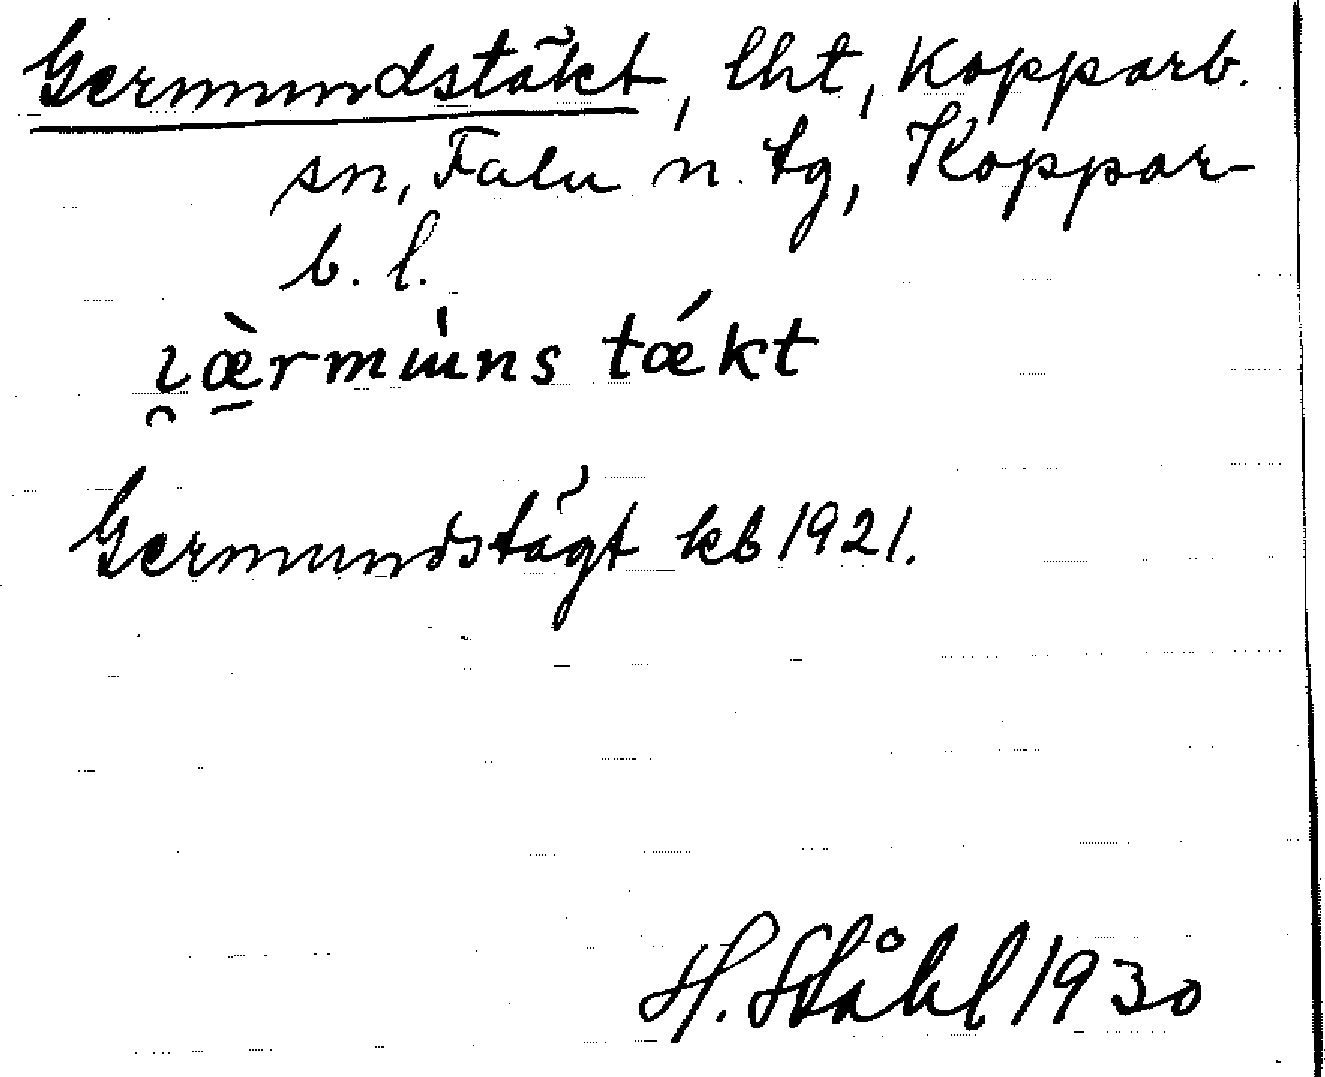 Germundstäkt, lht, Kopparb.
sn, Falu n. tg, Koppar-
b. l.
ı̯æ̠̀rmɯ́ns tǽkt
Germundstägt kb 1921.
H. Ståhl 1930